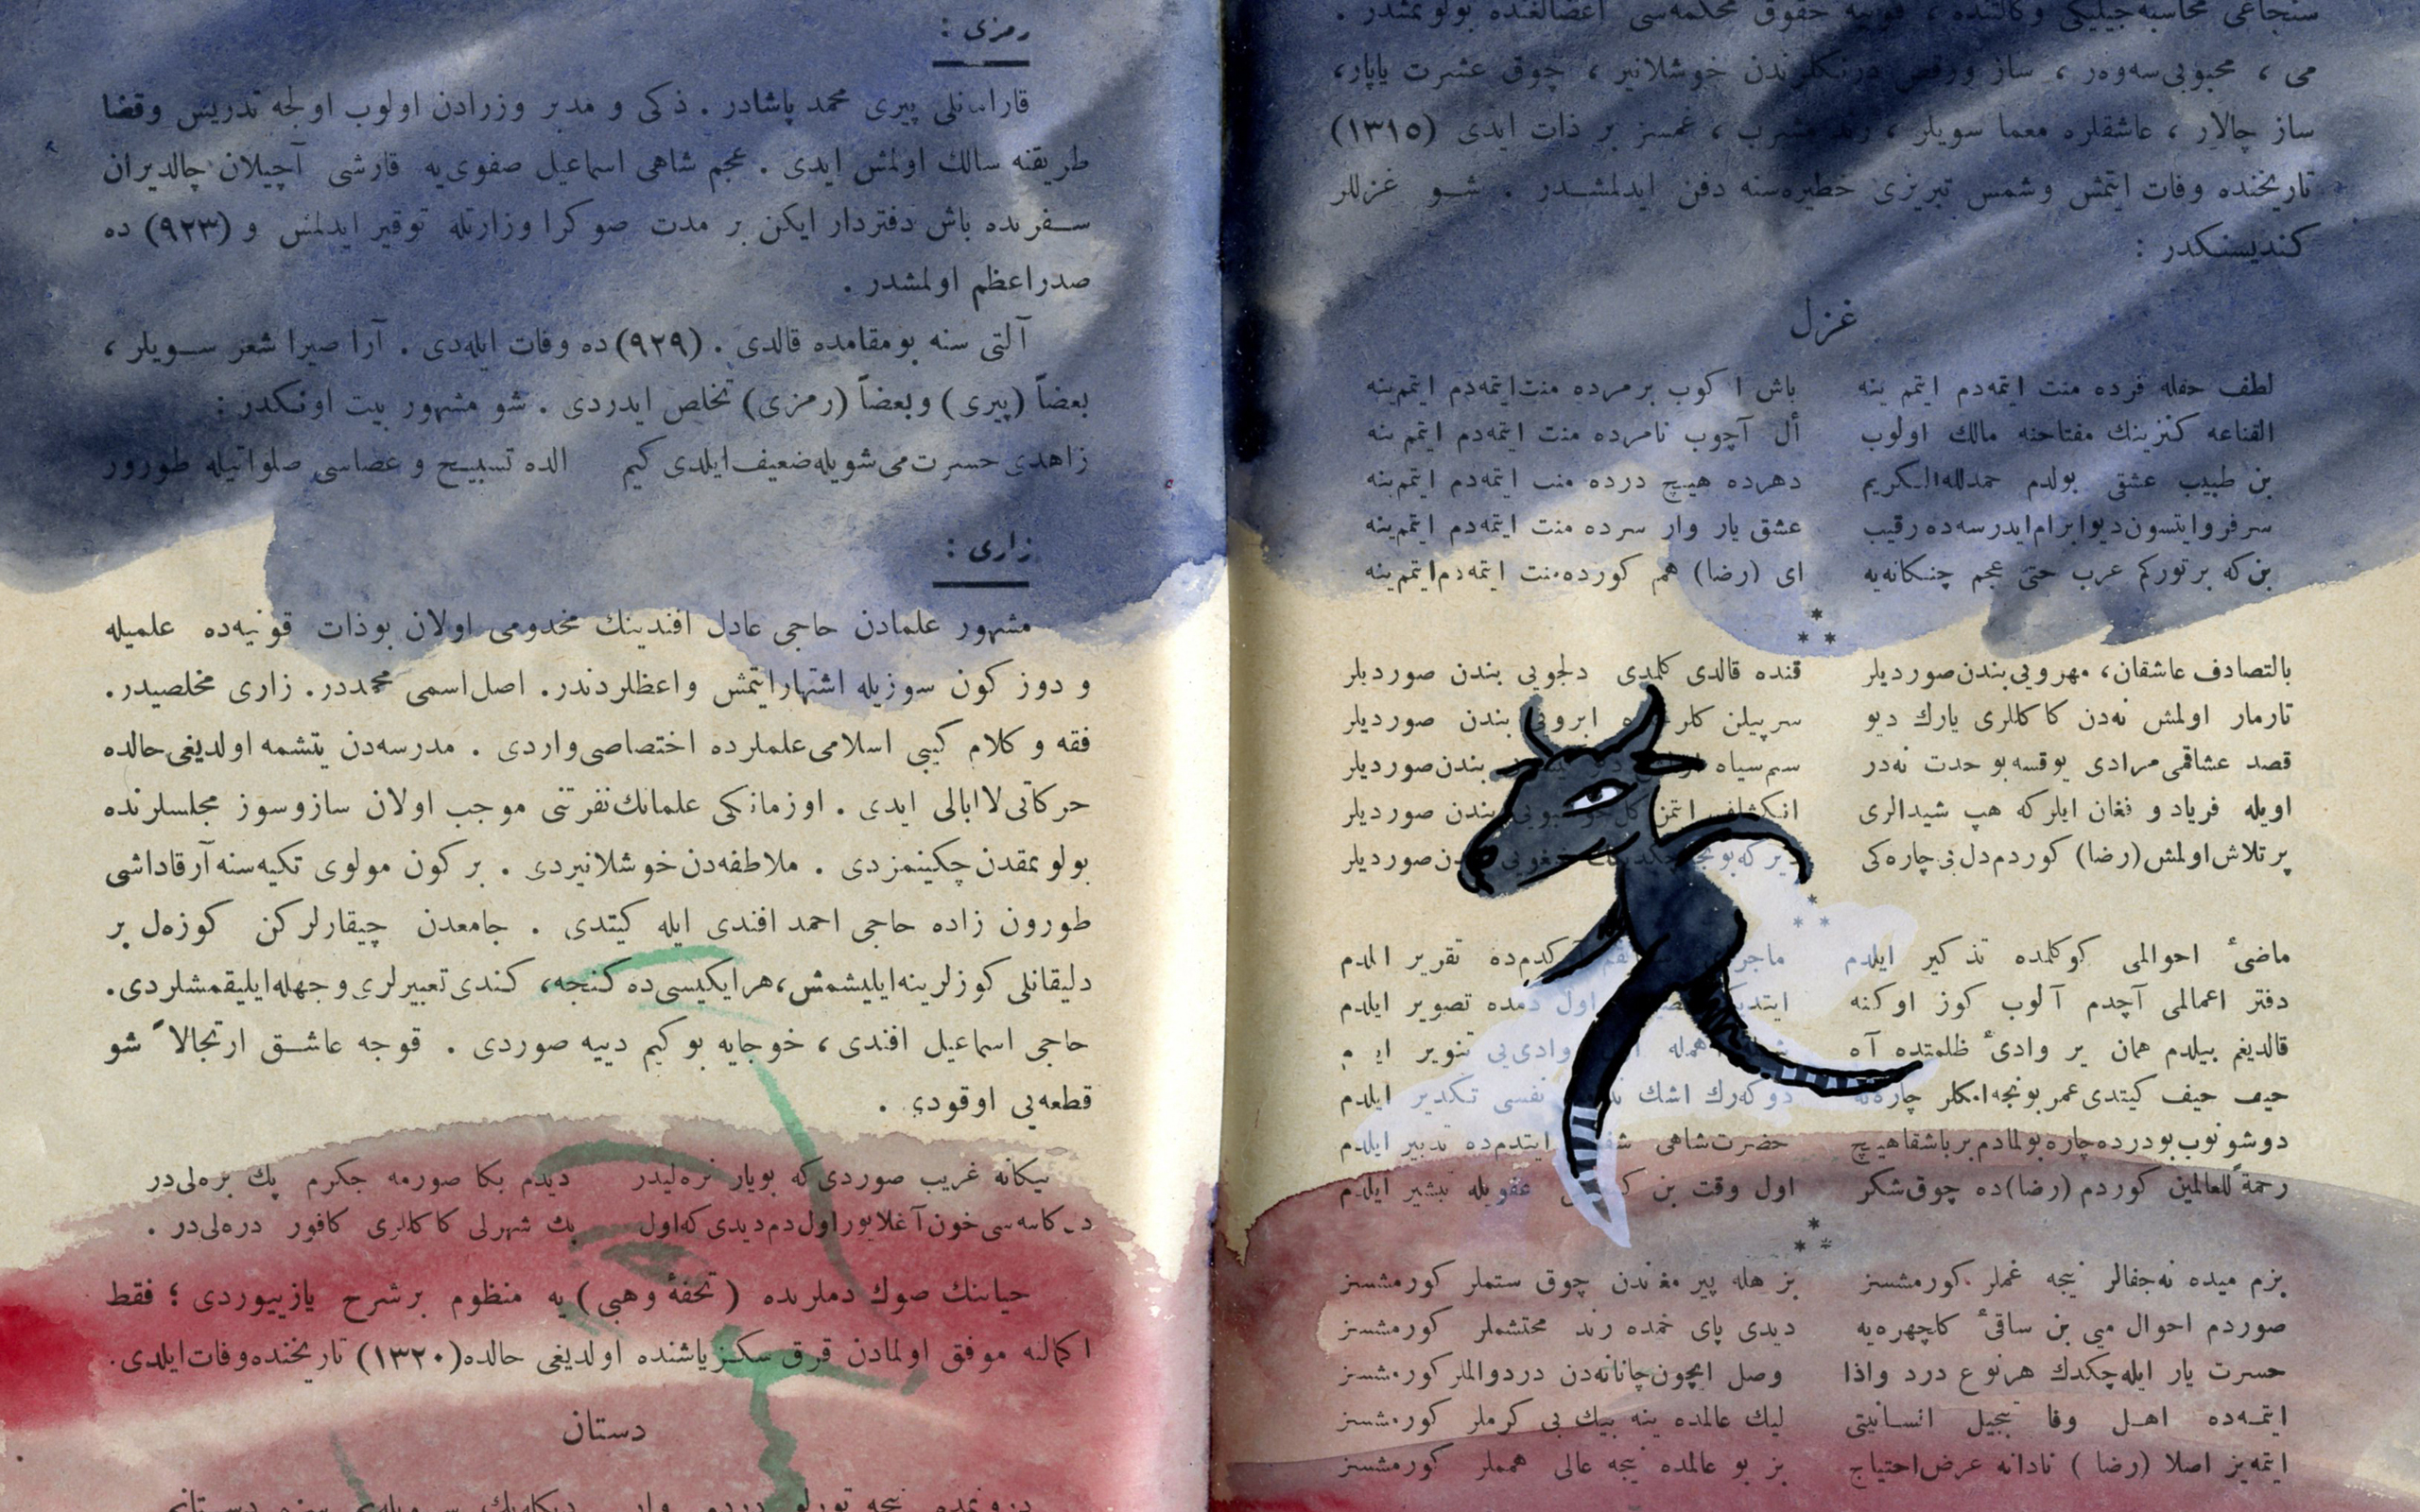 می ، محبوبی سه‌وه‌ر ، ساز ورقص درنکلرندن خوشلانیر ، چوق عشرت یاپار،
ساز چالار ، عاشقلره معما سویلر ، رند مشرب ، غمسز بر ذات ایدی (۱۳۱۵)
تاریخنده وفات ایتمش وشمس تبریزی خطیره‌سنه دفن ایدلمشدر . شو غزللر
کندیسنکدر :
غزل
لطف حقله فرده منت ایتمه‌دم ایتمم ینه باش اکوب بر مرده منت ایتمه‌دم ایتمم ینه
القناعه کنزینك مفتاحنه مالك اولوب أل آچوب نامرده منت ایتمه‌دم ایتمم ینه
بن طبیب عشقی بولدم حمدلله الکریم دهرده هیچ درده منت ایتمه‌دم ایتمم ینه
سرفرو ایتسون دیو ابرام ایدرسه‌ده رقیب عشق یار وار سرده منت ایتمه‌دم ایتمم ینه
بن که بر تورکم عرب حتی عجم چنکانه‌یه ای (رضا) هم کورده منت ایتمه‌دم ایتمم ینه
***
بالتصادف عاشقان، مهرویی بندن صوردیلر قنده قالدی کلمدی دلجویی بندن صوردیلر
تارمار اولمش نه‌دن کاکللری یارك دیو سرپیلن ابرویی بندن صوردیلر
قصد عشاقمی مرادی یوقسه بو حدت نه‌در سم سیاه بندن صوردیلر
اویله فریاد و فغان ایلر که هپ شیدالری انکشاف ایتمز بندن صوردیلر
پر تلاش اولمش (رضا) کوردم دل بی چاره‌کی دیر که بونجه بندن صوردیلر
***
ماضیٔ احوالمی کوکلمده تذکیر ایلدم تقریر ایلدم
دفتر اعمالمی آچدم آلوب کوز اوکنه اول دمده تصویر ایلدم
قالدیغم بیلدم همان بر وادیٔ ظلمتده آه وادی‌یی تنویر
حیف حیف کیتدی عمر بونجه امکلر چاره‌نه دوکه‌رك اشك نفسی تکدیر ایلدم
دوشونوب بو درده چاره بولمادم بر باشقا هیچ حضرت شاهی ایتدم‌ده تدبیر ایلدم
رحمة للعالمین کوردم (رضا) ده چوق شکر اول وقت بن عفویله تبشیر ایلدم
***
بزم میده نه جفالر نیجه غملر کورمشسز بز هله پیر مغاندن چوق ستملر کورمشسز
صوردم احوال میی بن ساقیٔ کلچهره‌یه دیدی پای خمده رند محتشملر کورمشسز
حسرت یار ایله چکدك هر نوع درد واذا وصل ایچون جانانه‌دن درد والملر کورمشسز
ایتمه‌ده اهل وفا تبجیل انسانیتی لیك عالمده ینه بیك بی کرملر کورمشسز
ایتمه‌یز اصلا (رضا) نادانه عرض احتیاج بز بو عالمده نیجه عالی هممله‌ر کورمشسز
رمزی :
قارامانلی پیری محمد پاشادر . ذکی و مدبر وزرادن اولوب اولجه تدریس وقضا
طریقنه سالك اولمش ایدی . عجم شاهی اسماعیل صفوی‌یه قارشی آچیلان چالدیران
سفرنده باش دفتردار ایکن بر مدت صوکرا وزارتله توقیر ایدلمش و (۹۲۳) ده
صدراعظم اولمشدر .
آلتی سنه بو مقامده قالدی . (۹۲۹) ده وفات ایله‌دی . آرا صیرا شعر سویلر ،
بعضاً (پیری) وبعضاً (رمزی) تخلص ایدردی . شو مشهور بیت اونکدر :
زاهدی حسرت می شویله ضعیف ایلدی کیم الده تسبیح و عصاسی صلواتیله طورور
زاری :
مشهور علمادن حاجی عادل افندینك مخدومی اولان بوذات قونیه‌ده علمیله
و دوز کون سوزیله اشتهار ایتمش واعظلردندر. اصل اسمی محمددر. زاری مخلصیدر.
فقه و کلام کیبی اسلامی علملرده اختصاصی واردی . مدرسه‌دن یتشمه اولدیغی حالده
حرکاتی لاابالی ایدی . او زمانکی علمانك نفرتنی موجب اولان ساز و سوز مجلسلرنده
بولونمقدن چکینمزدی . ملاطفه‌دن خوشلانیردی . بر کون مولوی تکیه‌سنه آرقاداشی
طورون زاده حاجی احمد افندی ایله کیتدی . جامعدن چیقارلرکن کوزه‌ل بر
دلیقانلی کوزلرینه ایلیشمش، هر ایکیسی‌ده کنجه، کندی تعبیرلری وجهله ایلیقمشلردی.
حاجی اسماعیل افندی ، خوجایه بو کیم دییه صوردی . قوجه عاشق ارتجالاً شو
قطعه‌یی اوقودی .
بیکانه غریب صوردی که بو یار نره‌لیدر دیدم بکا صورمه جکرم پك بره‌لی‌در
خون آغلایور اول دم دیدی که اول بك شهرلی کاکللری کافور دره‌لی‌در .
حیاتنك صوك دملرنده (تحفهٔ وهبی) یه منظوم بر شرح یازییوردی ؛ فقط
اکمالنه موفق اولمادن قرق سکز یاشنده اولدیغی حالده (۱۳۲۰) تاریخنده وفات ایلدی.
دستان